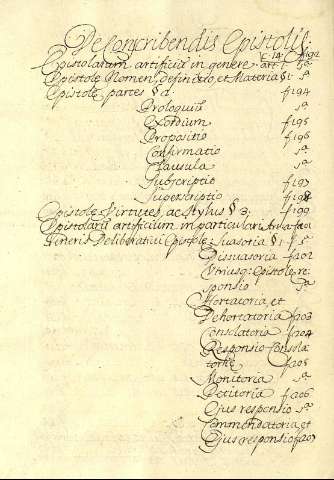 De Conscribendis Epistolis.
Epistolarum artificix in genere. C. 14. f192
Epistolę Nomen, definitio, et Materia § 1 sª
Epistolę partes § 2. f194
Prologuiũ sª
Exordium f195
Propositio f196
Confirmatio sª
Clausula sª
Subscriptio f197
Superscriptio f198
Epistolę Virtutes, ac Stylus § 3. f199
Epistolarũ artificium in particulari Ar. 2. f201
Generis Deliberativi Epistolę: Suasoria § 1. sª
Dissuasoria f202
Vtriusq; Epistolę re;
sponsio sª
Hortatoria, et
Dehortatoria f203
Consolatoria f204
Responsio Consola
torię f205
Monitoria sª
Petitoria f206
Ejus responsio sª
Commendatoria, et
Ejus responsio f207